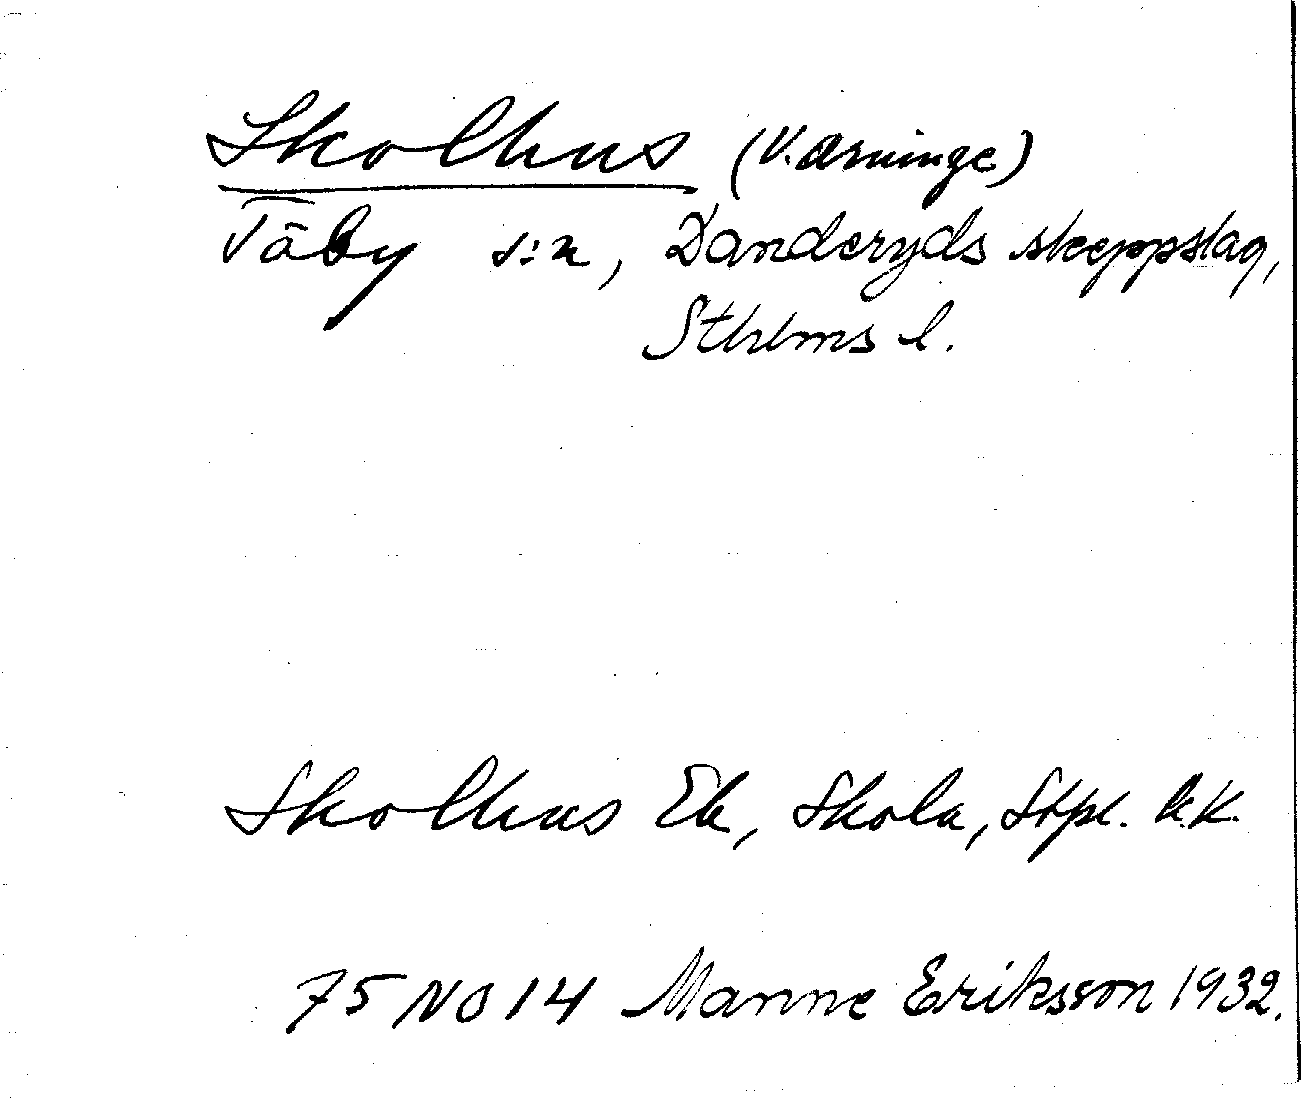 Skolhus (V. Arninge)
Täby s:n, Danderyds skeppslag,
Sthlms l.
Skolhus Ek, Skola, Stpl. k.k.
75 NO 14 Manne Eriksson 1932.